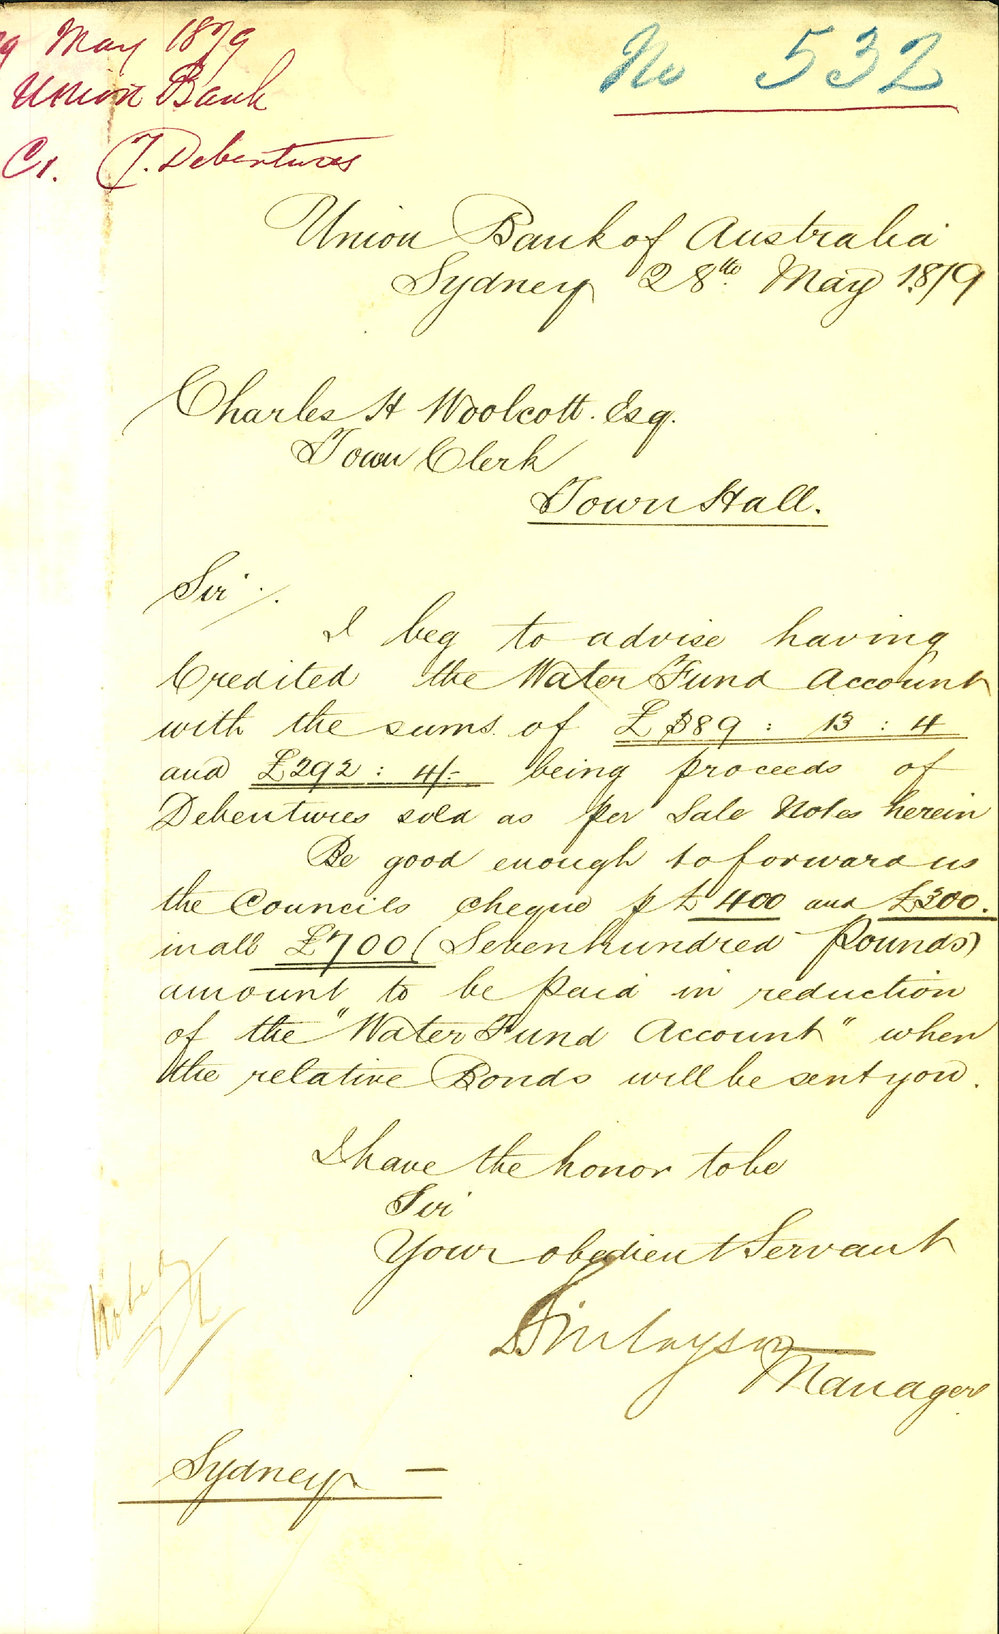 9 May 1879
Union Bank
Cr. T. Debentures
No 532
Union Bank of Australia
Sydney 28th May 1879
Charles H Woolcott. Esq.
Town Clerk
Town Hall.
Sir
I beg to advise having
Credited the Water Fund Account
with the sums of £389 : 13 : 4
and £292 : 4/- being proceeds of
Debentures sold as per Sale Notes herein
Be good enough to forward us
the Councils cheque p £400 and £300.
in all £700 (Seven hundred Pounds)
amount to be paid in reduction
of the "Water Fund Account" when
the relative Bonds will be sent you.
I have the honor to be
Sir
Your obedient Servant
Finlayson
Manager
Sydney —